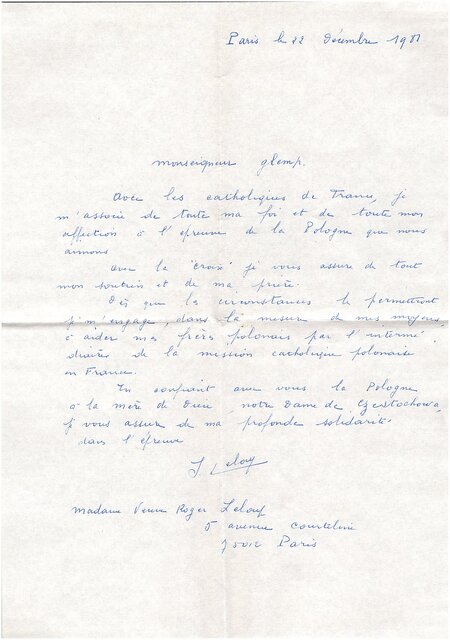 Paris le 22 décembre 1981
monseigneur glemp.
avec les catholiques de France, je
m'associe de toute ma foi et de toute mon
affection à l'épreuve de la Pologne que nous
aimons
avec la "croix" je vous assure de tout
mon soutien et de ma prière.
Dès que les circonstances le permettront
je m'engage, dans la mesure de mes moyens,
à aider mes frères polonais par l'intermé-
diaire de la mission catholique polonaise
en France.
En confiant avec vous la Pologne
à la mère de Dieu notre Dame de Czestochowa,
je vous assure de ma profonde solidarité
dans l'épreuve
madame Veuve Roger
5 avenue Courteline
75012 Paris